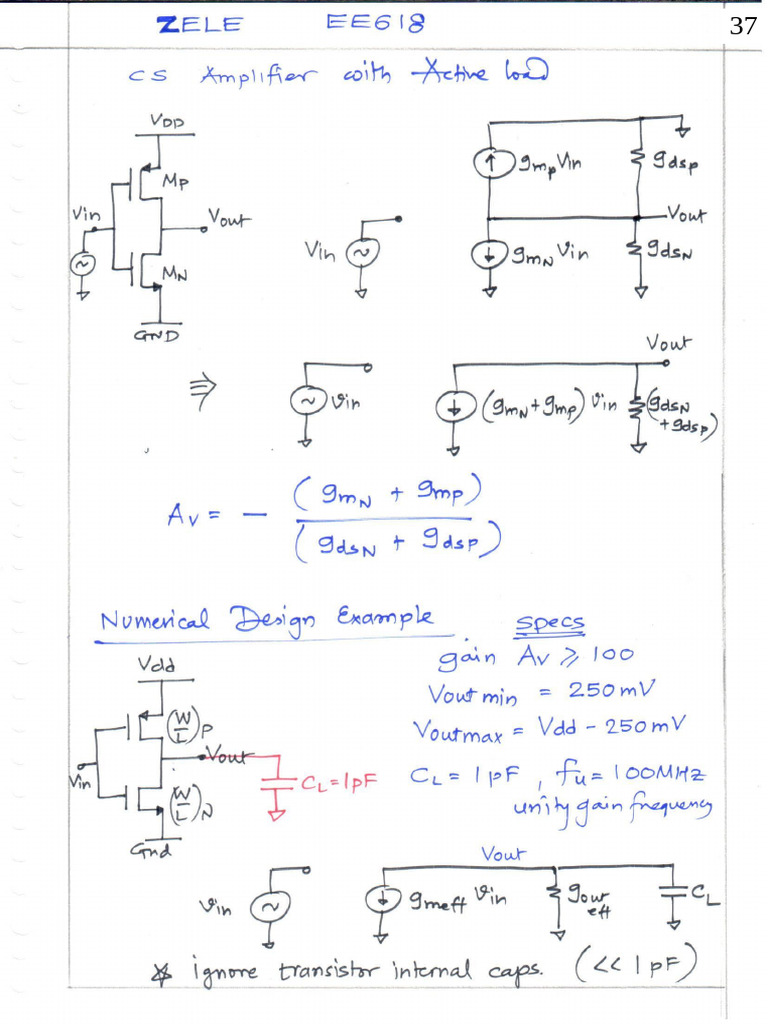 ZELE EE618 37
CS Amplifier with Active load
VDD
MP
Vin
Vout
MN
GND
Vin
gmp Vin
gdsp
Vout
gmN Vin
gdsN
⇒
Vin
Vout
(gmN + gmp) Vin
(gdsN + gdsp)
Av = - (gmN + gmp) / (gdsN + gdsp)
Numerical Design Example
specs
gain Av ⩾ 100
Vout min = 250mV
Voutmax = Vdd - 250mV
CL = 1pF , fu = 100MHz
unity gain frequency
Vdd
(W/L)P
Vin
Vout
CL = 1pF
(W/L)N
Gnd
Vout
Vin
gmeff Vin
gout eff
CL
* ignore transistor internal caps. (<< 1pF)